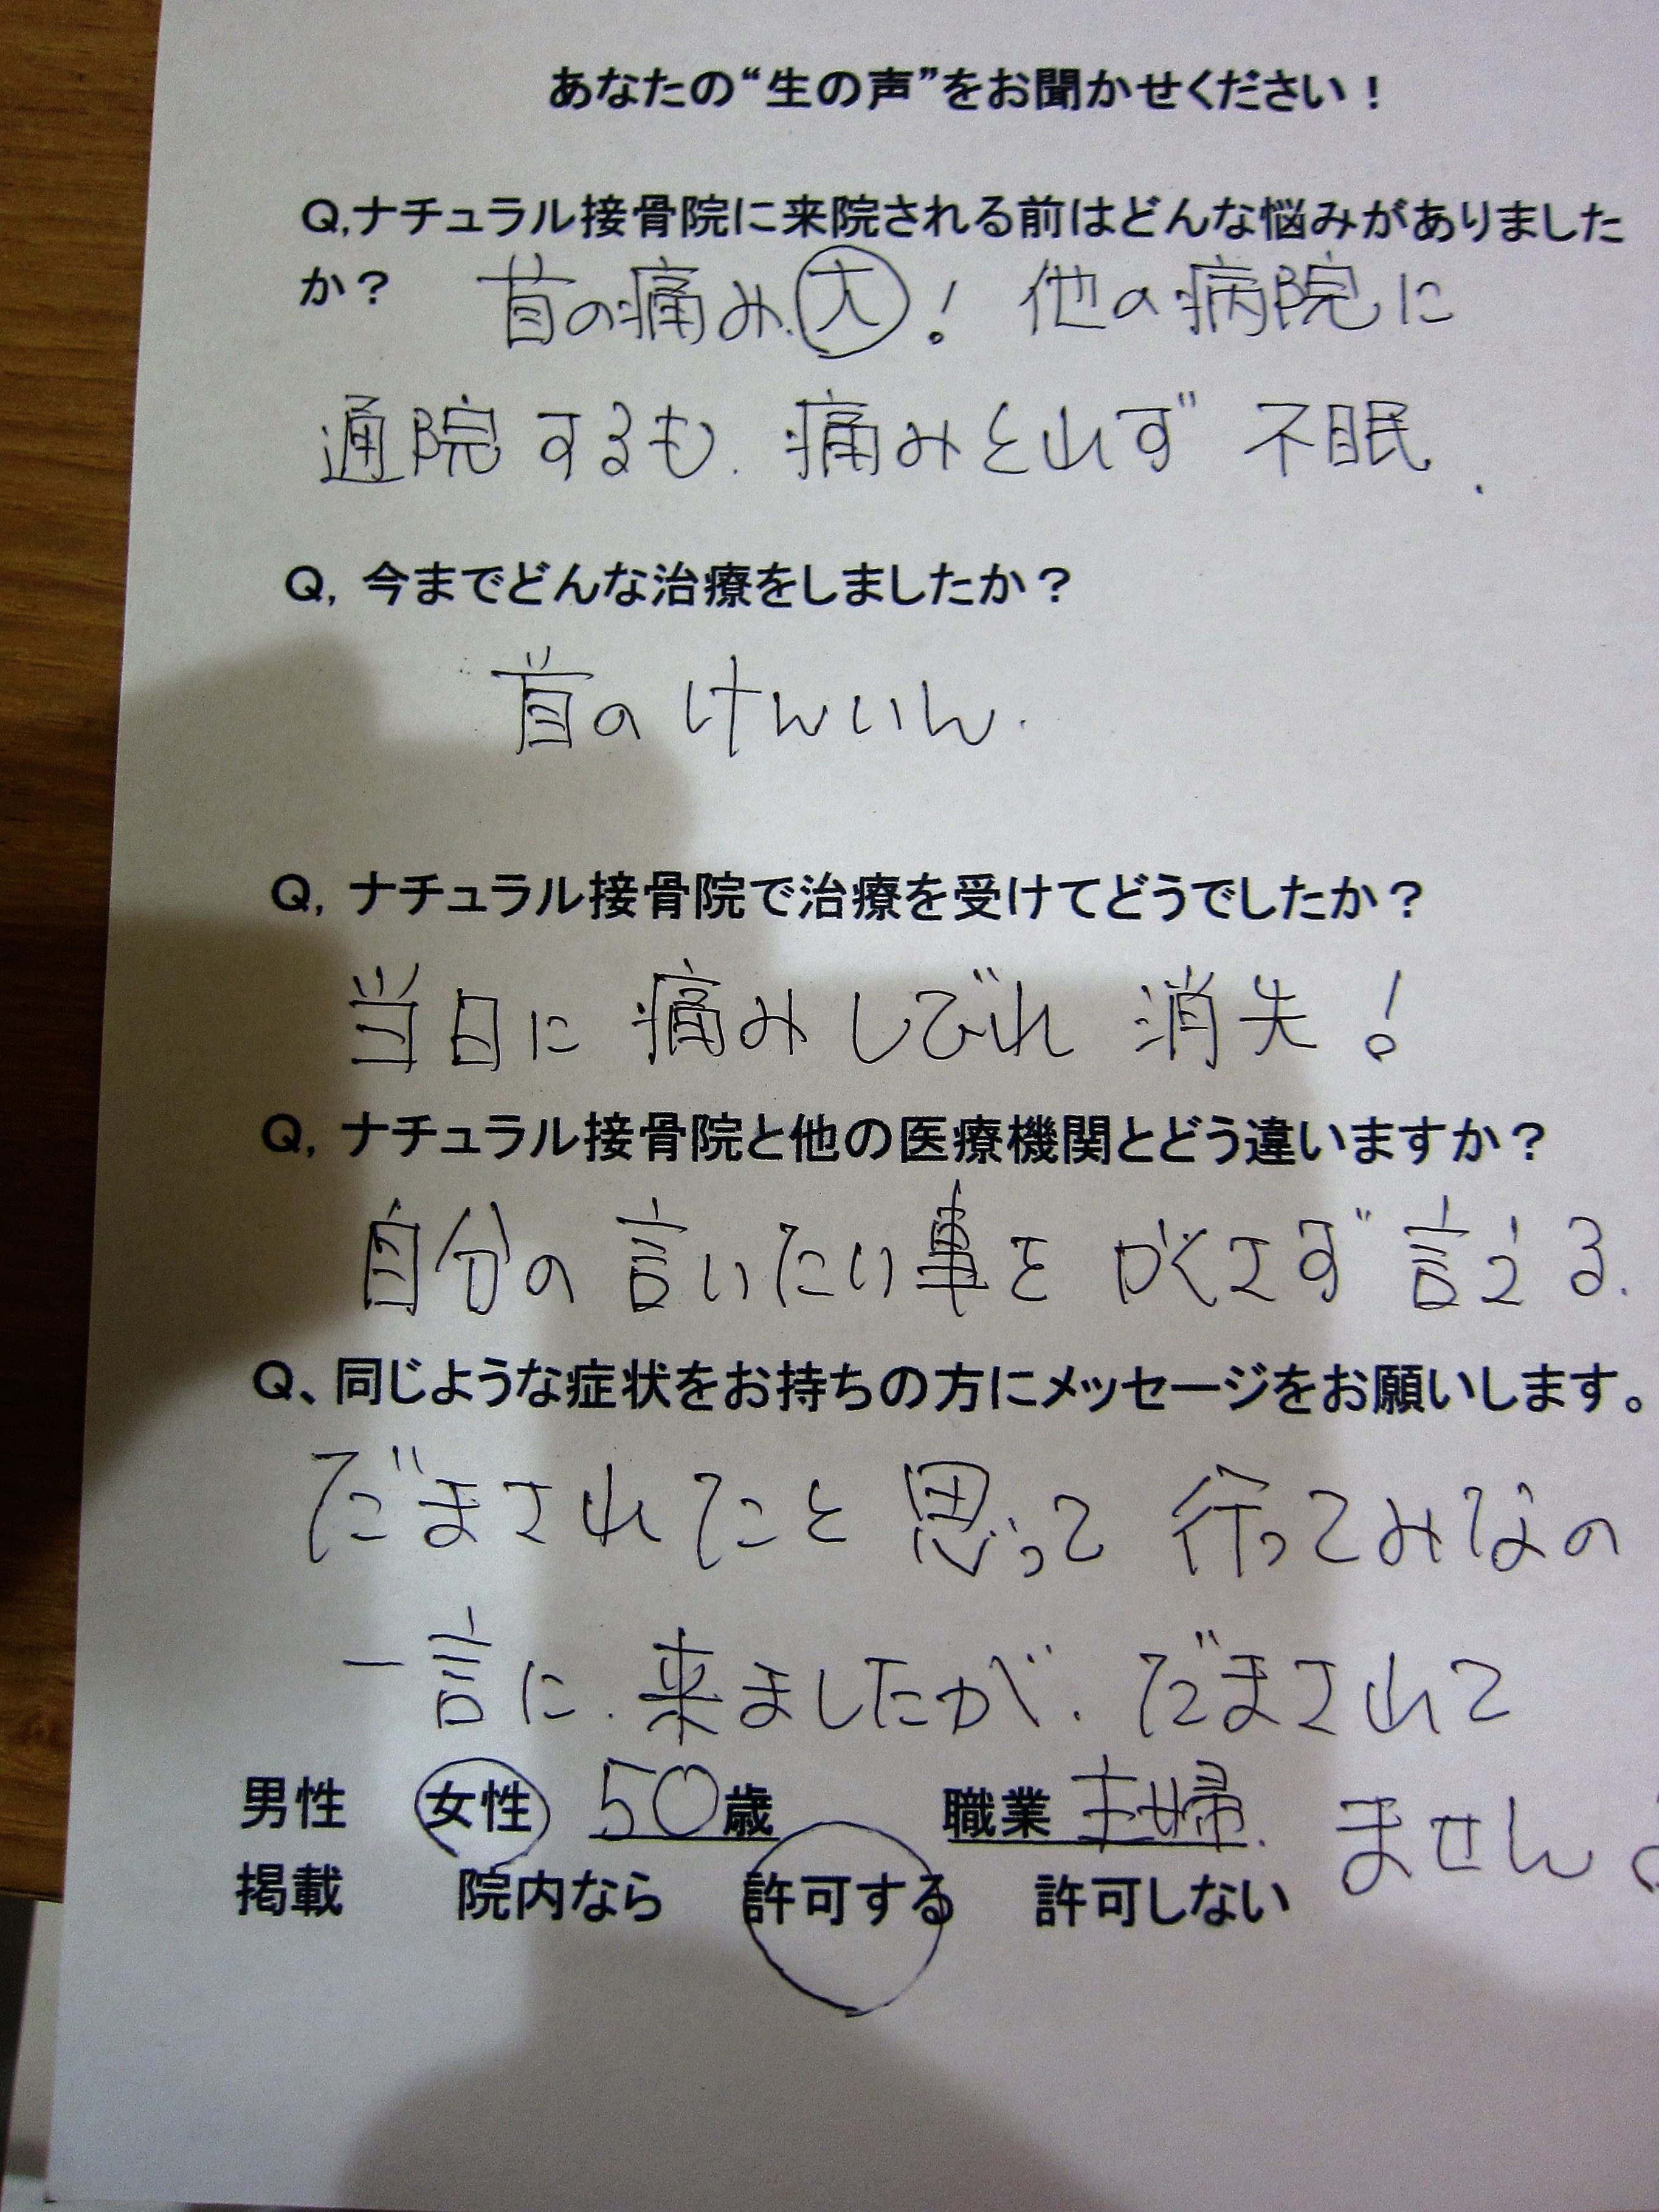 あなたの“生の声”をお聞かせください！
Q,ナチュラル接骨院に来院される前はどんな悩みがありました
か？ 首の痛み.大！ 他の病院に
通院するも. 痛みとれず 不眠.
Q, 今までどんな治療をしましたか？
首の けんいん.
Q, ナチュラル接骨院で治療を受けてどうでしたか？
当日に 痛み しびれ 消失！
Q, ナチュラル接骨院と他の医療機関とどう違いますか？
自分の 言いたい事を かくさず 言える.
Q、同じような症状をお持ちの方にメッセージをお願いします。
だまされたと 思って 行ってみなの
一言に. 来ましたが. だまされて
男性 女性 50歳 職業 主婦. ません
掲載 院内なら 許可する 許可しない